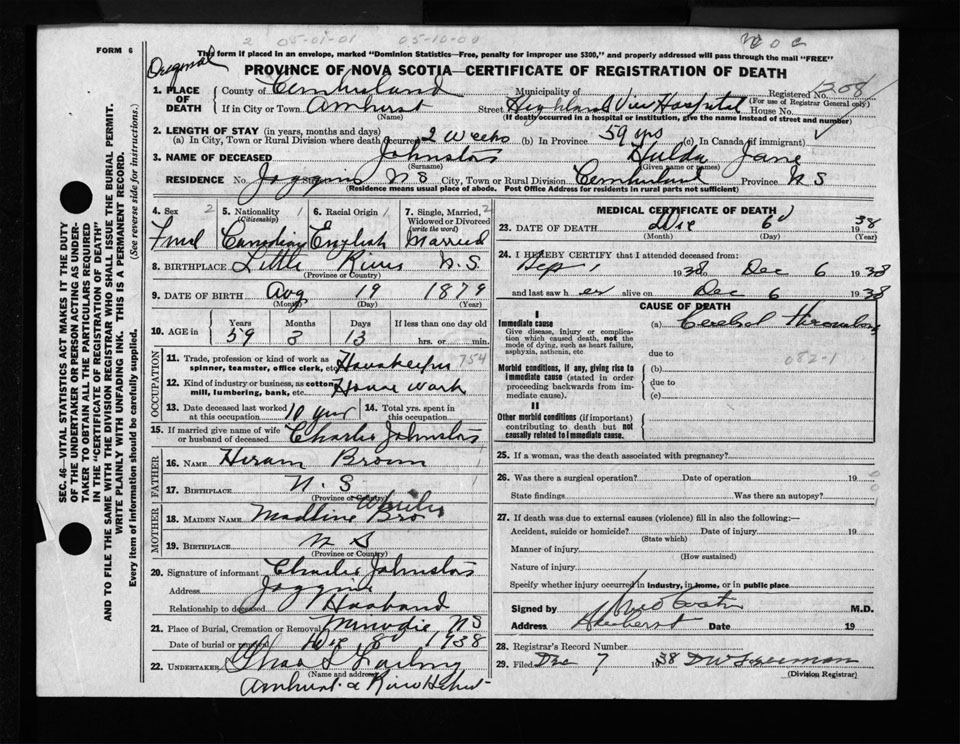 2 05-01-01 05-10-00
FORM 6
This form if placed in an envelope, marked "Dominion Statistics—Free, penalty for improper use $300," and properly addressed will pass through the mail "FREE"
Original
PROVINCE OF NOVA SCOTIA—CERTIFICATE OF REGISTRATION OF DEATH
1. PLACE OF DEATH
County of Cumberland Municipality of Registered No. (For use of Registrar General only)
If in City or Town Amherst (Name) Street Highland View Hospital House No.
(If death occurred in a hospital or institution, give the name instead of street and number)
2. LENGTH OF STAY (in years, months and days)
(a) In City, Town or Rural Division where death occurred 2 weeks (b) In Province 59 yrs (c) In Canada (if immigrant)
3. NAME OF DECEASED Johnston (Surname) Hulda Jane (Given name or names)
RESIDENCE No. Joggins N S City, Town or Rural Division Cumberland Province N S
(Residence means usual place of abode. Post Office Address for residents in rural parts not sufficient)
4. Sex 2
Fmal
5. Nationality 1 (Citizenship)
Canadian
6. Racial Origin 1
English
7. Single, Married, 2 Widowed or Divorced (write the word)
Married
8. BIRTHPLACE Little River N. S. (Province or Country)
9. DATE OF BIRTH Aug 19 1879
(Month) (Day) (Year)
10. AGE in Years Months Days If less than one day old
59 3 13 hrs. or min.
OCCUPATION
11. Trade, profession or kind of work as spinner, teamster, office clerk, etc. Housekeeper 754
12. Kind of industry or business, as cotton mill, lumbering, bank, etc. House Work
13. Date deceased last worked at this occupation 10 year
14. Total yrs. spent in this occupation
15. If married give name of wife or husband of deceased Charlie Johnston
FATHER
16. NAME Hiram Brown
17. BIRTHPLACE N. S (Province or Country)
MOTHER
18. MAIDEN NAME Madline
19. BIRTHPLACE N S
(Province or Country)
20. Signature of informant Charlie Johnston
Address Joggins
Relationship to deceased Husband
21. Place of Burial, Cremation or Removal Minudie N S
Date of burial or removal Dec 8 1938
22. UNDERTAKER
(Name and address)
Amherst & River Hebert
MEDICAL CERTIFICATE OF DEATH
23. DATE OF DEATH Dec 6 1938
(Month) (Day) (Year)
24. I HEREBY CERTIFY that I attended deceased from:
Sep 1 1938 to Dec 6 1938
and last saw her alive on Dec 6 1938
CAUSE OF DEATH
I
Immediate cause
Give disease, injury or complication which caused death, not the mode of dying, such as heart failure, asphyxia, asthenia, etc.
(a) Cerebral Thrombosis
due to
082-1
Morbid conditions, if any, giving rise to immediate cause (stated in order proceeding backwards from immediate cause).
(b)
due to
(c)
II
Other morbid conditions (if important) contributing to death but not causally related to immediate cause.
25. If a woman, was the death associated with pregnancy?
26. Was there a surgical operation? Date of operation 19
State findings Was there an autopsy?
27. If death was due to external causes (violence) fill in also the following:—
Accident, suicide or homicide? Date of injury 19
(State which)
Manner of injury
(How sustained)
Nature of injury
Specify whether injury occurred in industry, in home, or in public place
Signed by M.D.
Address Amherst Date 19
28. Registrar's Record Number
29. Filed Dec 7 1938 D W Freeman
(Division Registrar)
SEC. 46—VITAL STATISTICS ACT MAKES IT THE DUTY
OF THE UNDERTAKER OR PERSON ACTING AS UNDERTAKER TO OBTAIN ALL THE PARTICULARS REQUIRED
IN THE "CERTIFICATE OF REGISTRATION OF DEATH"
AND TO FILE THE SAME WITH THE DIVISION REGISTRAR WHO SHALL ISSUE THE BURIAL PERMIT.
WRITE PLAINLY WITH UNFADING INK. THIS IS A PERMANENT RECORD.
Every item of information should be carefully supplied. (See reverse side for instructions.)